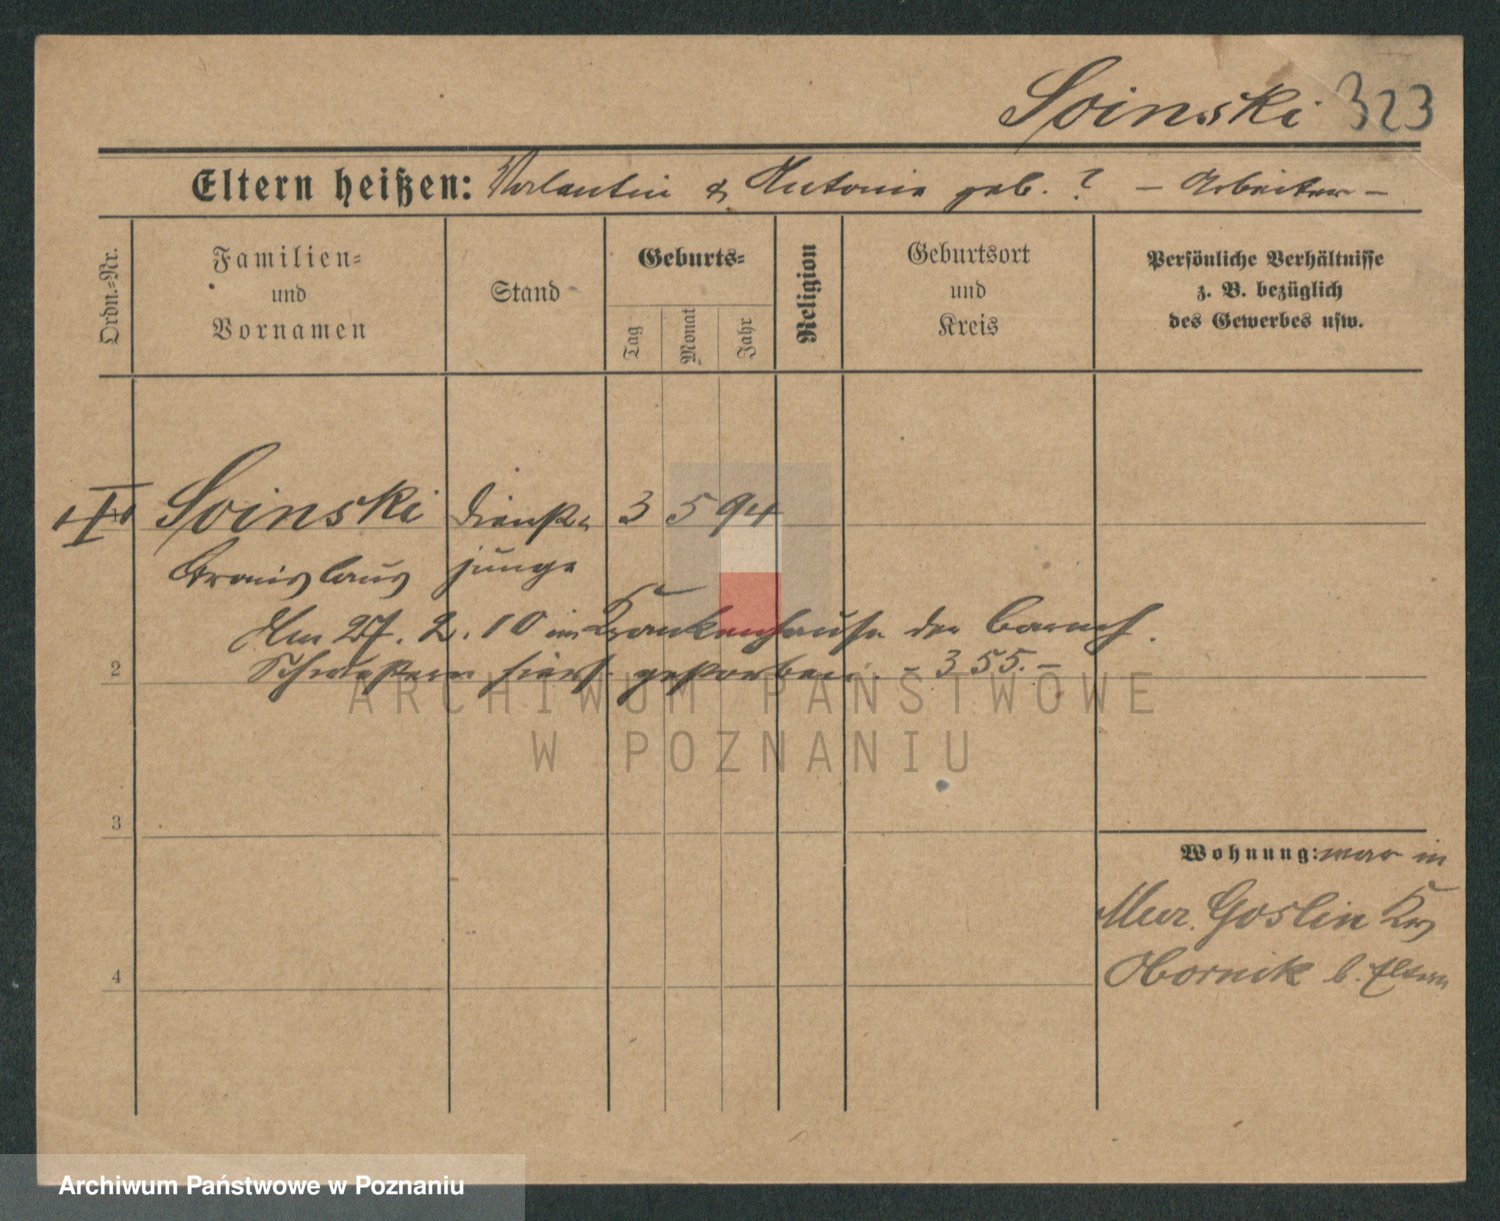 Soinski 323
Eltern heißen: Valentin & Antonie geb. ? – Arbeiter –
Ordn.-Nr.
Familien-
und
Vornamen
Stand
Geburts-
Tag
Monat
Jahr
Religion
Geburtsort
und
Kreis
Persönliche Verhältnisse
z. B. bezüglich
des Gewerbes usw.
Soinski Dienst- 3 5 94
junge
Am 27. 2. 10 im Krankenhause der barmh.
2 Schwestern hiers. gestorben. – 355. –
ARCHIWUM PAŃSTWOWE
W POZNANIU
3
Wohnung: war in
Mur. Goslin Krs
Obornik b. Eltern
4
Archiwum Państwowe w Poznaniu